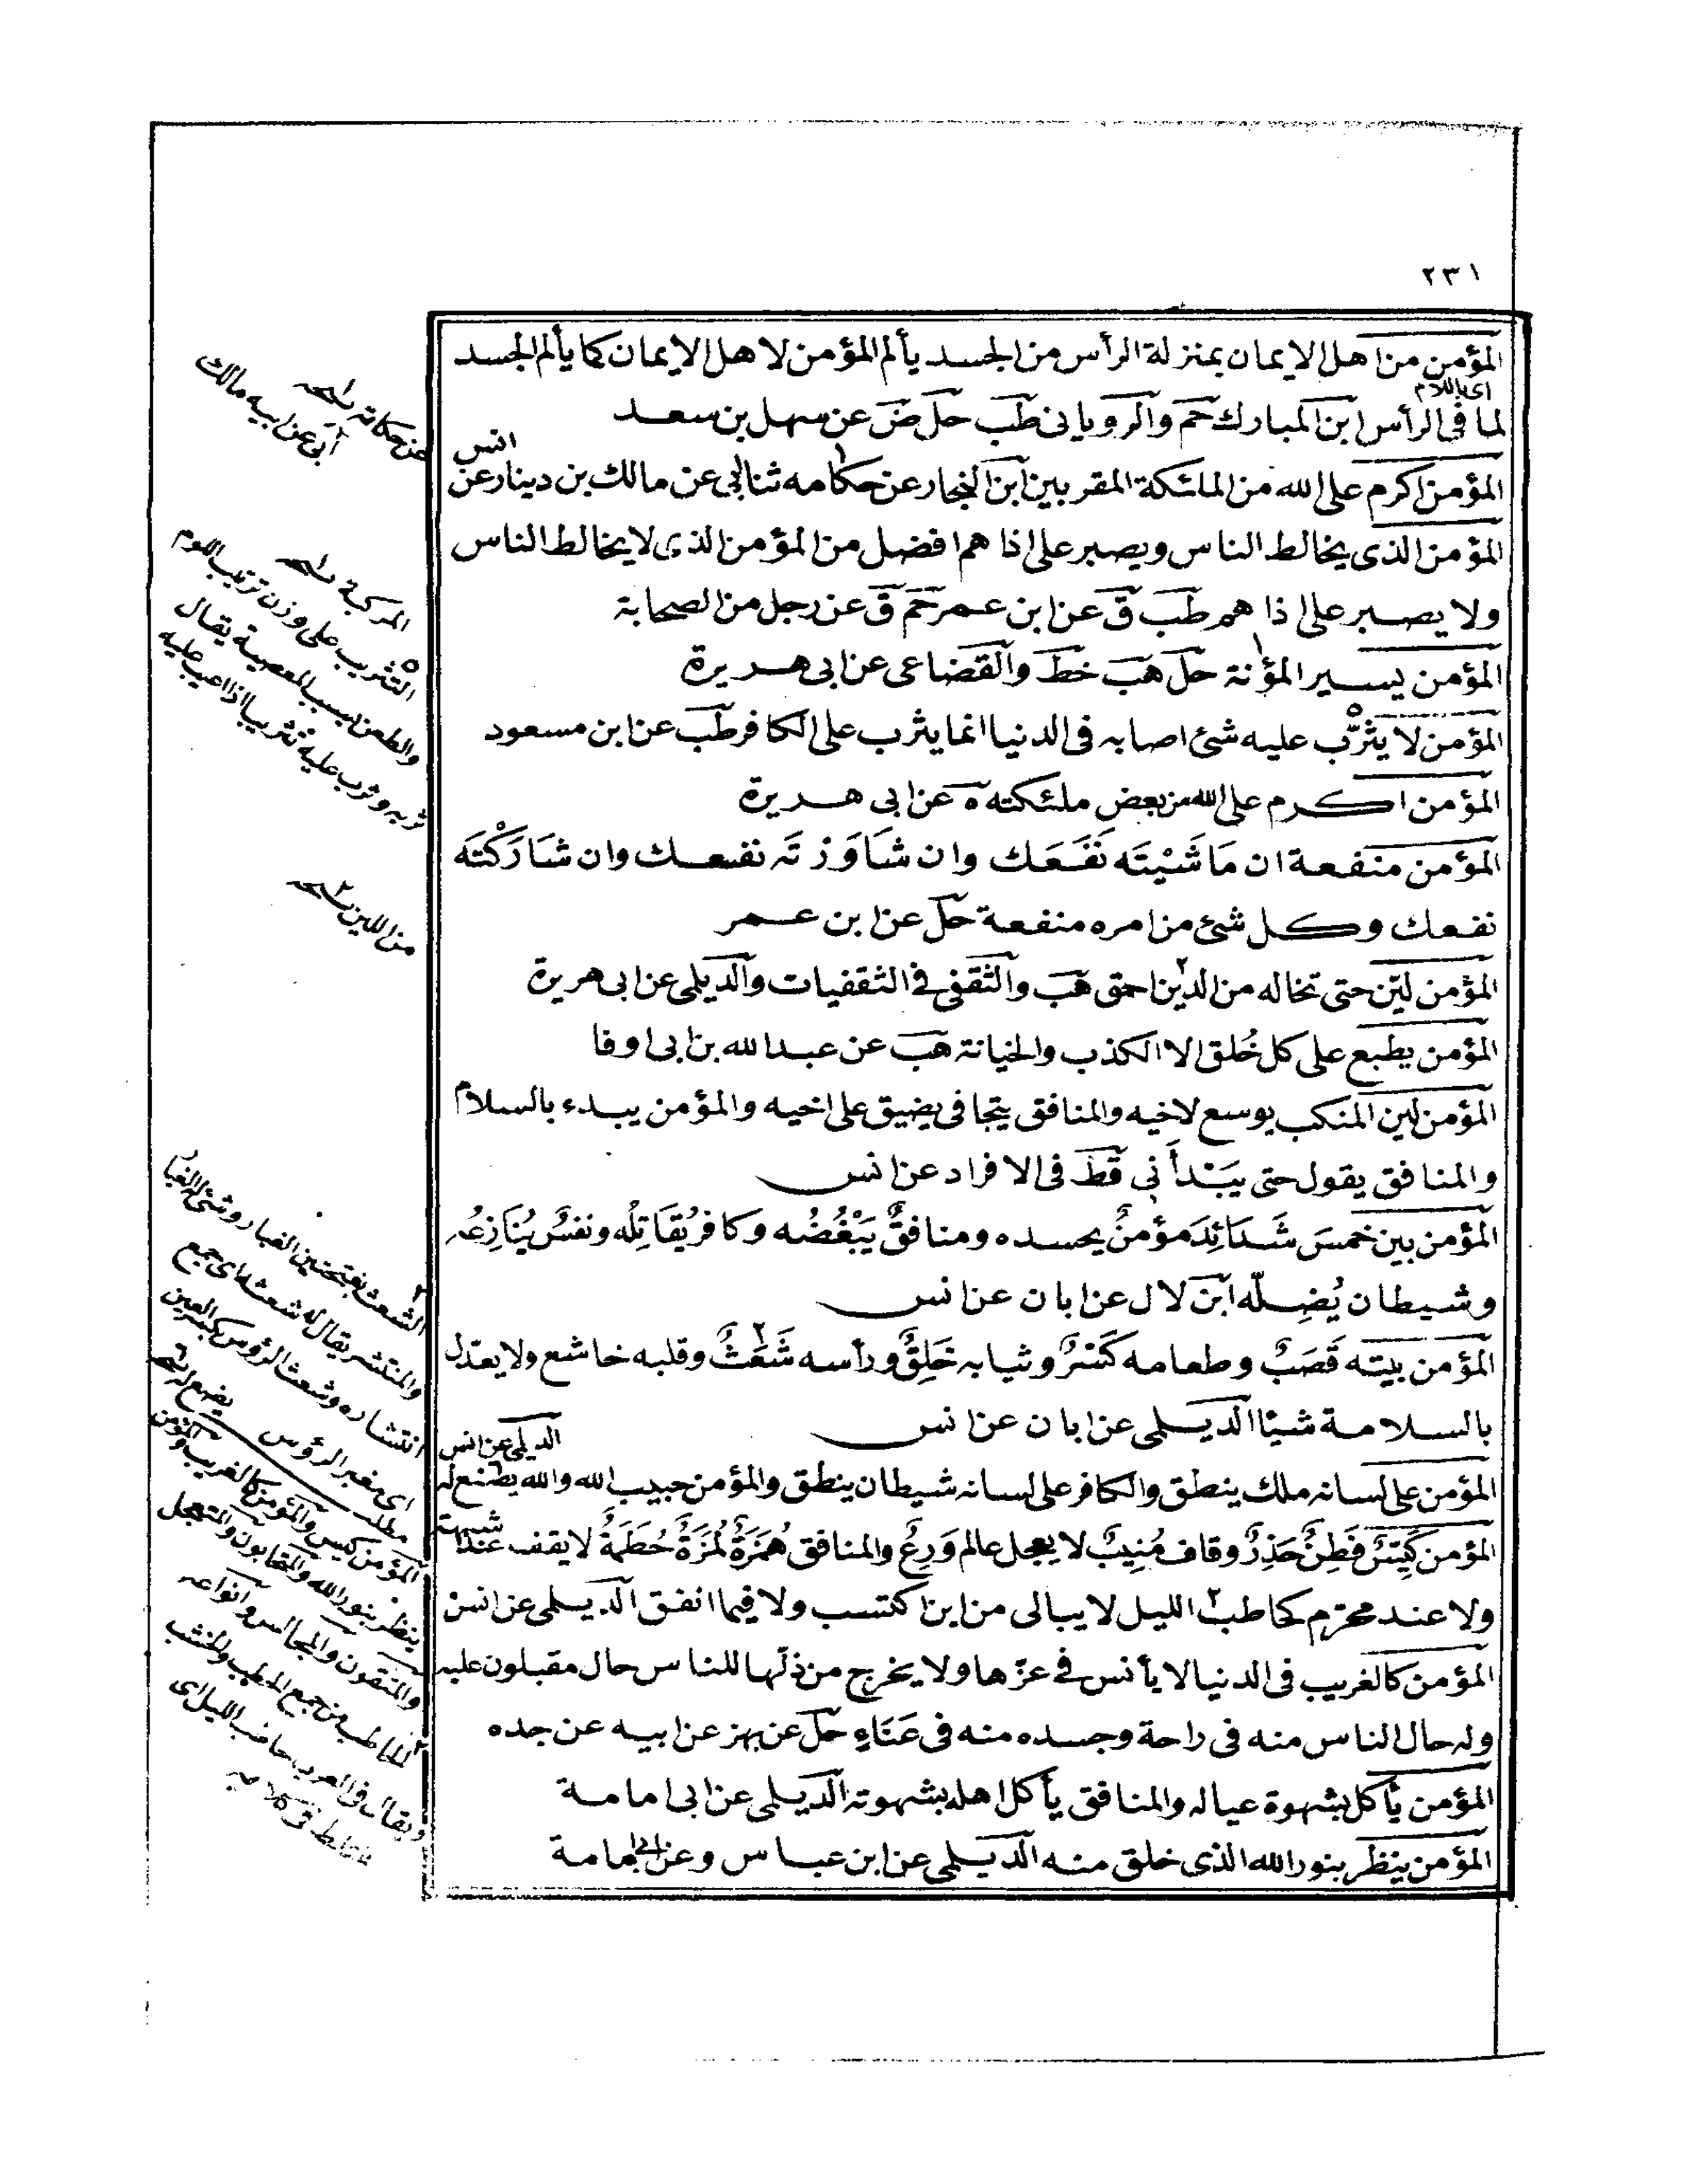 ٢٣١
المؤمن من اهل الايمان بمنزلة الرأس من الجسد يألم المؤمن لاهل الايمان كما يألم الجسد
لما فى الرأس ابن المبارك حم والرويانى طب حل ض عن سهل بن سعد
انس
المؤمن اكرم على الله من الملئكة المقربين ابن النجار عن حكامه ثنا ابى عن مالك بن دينار عن
المؤمن الذى يخالط الناس ويصبر على اذا هم افضل من المؤمن الذى لا يخالط الناس
ولا يصبر على اذا هم طب ق عن ابن عمر حم ق عن رجل من الصحابة
المؤمن يسير المؤنة حل هب خط والقضاعى عن ابى هريرة
المؤمن لا يثرّب عليه شئ اصابه فى الدنيا انما يثرب على الكافر طب عن ابن مسعود
المؤمن اكرم على الله من بعض ملئكته ه عن ابى هريرة
المؤمن منفعة ان مَاشَيْتَه نَفَعَك وان شَاوَرْتَه نفعك وان شَارَكْتَه
نفعك وكل شئ من امره منفعة حل عن ابن عمر
المؤمن ليّن حتى تخاله من الدّين احمق هب والثقفى فى الثقفيات والديلمى عن ابى هريرة
المؤمن يطبع على كل خُلق الا الكذب والخيانة هب عن عبد الله بن ابى اوفا
المؤمن لين المنكب يوسع لاخيه والمنافق يتجافى يضيق على اخيه والمؤمن يبدء بالسلام
والمنافق يقول حتى يَبْدأنى قط فى الافراد عن انس
المؤمن بين خمس شَدَائِدَ مؤمنٌ يحسده ومنافقٌ يَبْغُضُه وكافر يُقَاتِلُه ونفسٌ يُنَازِعُه
وشيطان يُضِلّه ابن لال عن ابان عن انس
المؤمن بيته قَصَبٌ وطعامه كَسْرٌ وثيابه خَلِقٌ ورأسه شَعَثٌ وقلبه خاشع ولا يعدّل
بالسلامة شيئا الديلمى عن ابان عن انس
الديلمى عن انس
المؤمن على لسانه ملك ينطق والكافر على لسانه شيطان ينطق والمؤمن حبيب الله والله يصنع له
شبهة
المؤمن كَيِّسٌ فَطِنٌ حَذِرٌ وقاف مُنِيبٌ لا يعجل عالم وَرِعٌ والمنافق هُمَزَةٌ لُمَزَةٌ حُطَمَةٌ لا يقف عند
ولا عند محرّم كحاطب الليل لا يبالى من اين اكتسب ولا فيما انفق الديلمى عن انس
المؤمن كالغريب فى الدنيا لا يأنس فى عزّها ولا يخرج من ذلّها للناس حال مقبلون عليه
وله حال الناس منه فى راحة وجسده منه فى عَنَاءٍ حل عن بهز عن ابيه عن جده
المؤمن يأكل بشهوة عياله والمنافق يأكل اهله بشهوته الديلمى عن ابى امامة
المؤمن ينظر بنور الله الذى خلق منه الديلمى عن ابن عباس وعن ابى امامة
عن حكاته نسخه
أبى عن ابيه مالك
التثريب على وزن ترتيب اللوم
والطعن بسبب المعصية يقال
ثربه وثرب عليه تثريبا اذا عيب عليه
من اللين نسخه
الشعث بفتحتين الغبار وشئ الغبار
والمنتشر يقال له شعث اى جمع
انتشاره وشعث الرؤس بكسر العين
اى مغبر الرؤس
مطلب
المؤمن كيس والمؤمن كالغريب والمؤمن
ينظر بنور الله
والمتقون والمجالس وانواعه
الحاطب من جمع الحطب
ويقال فى العرب حاطب الليل اى